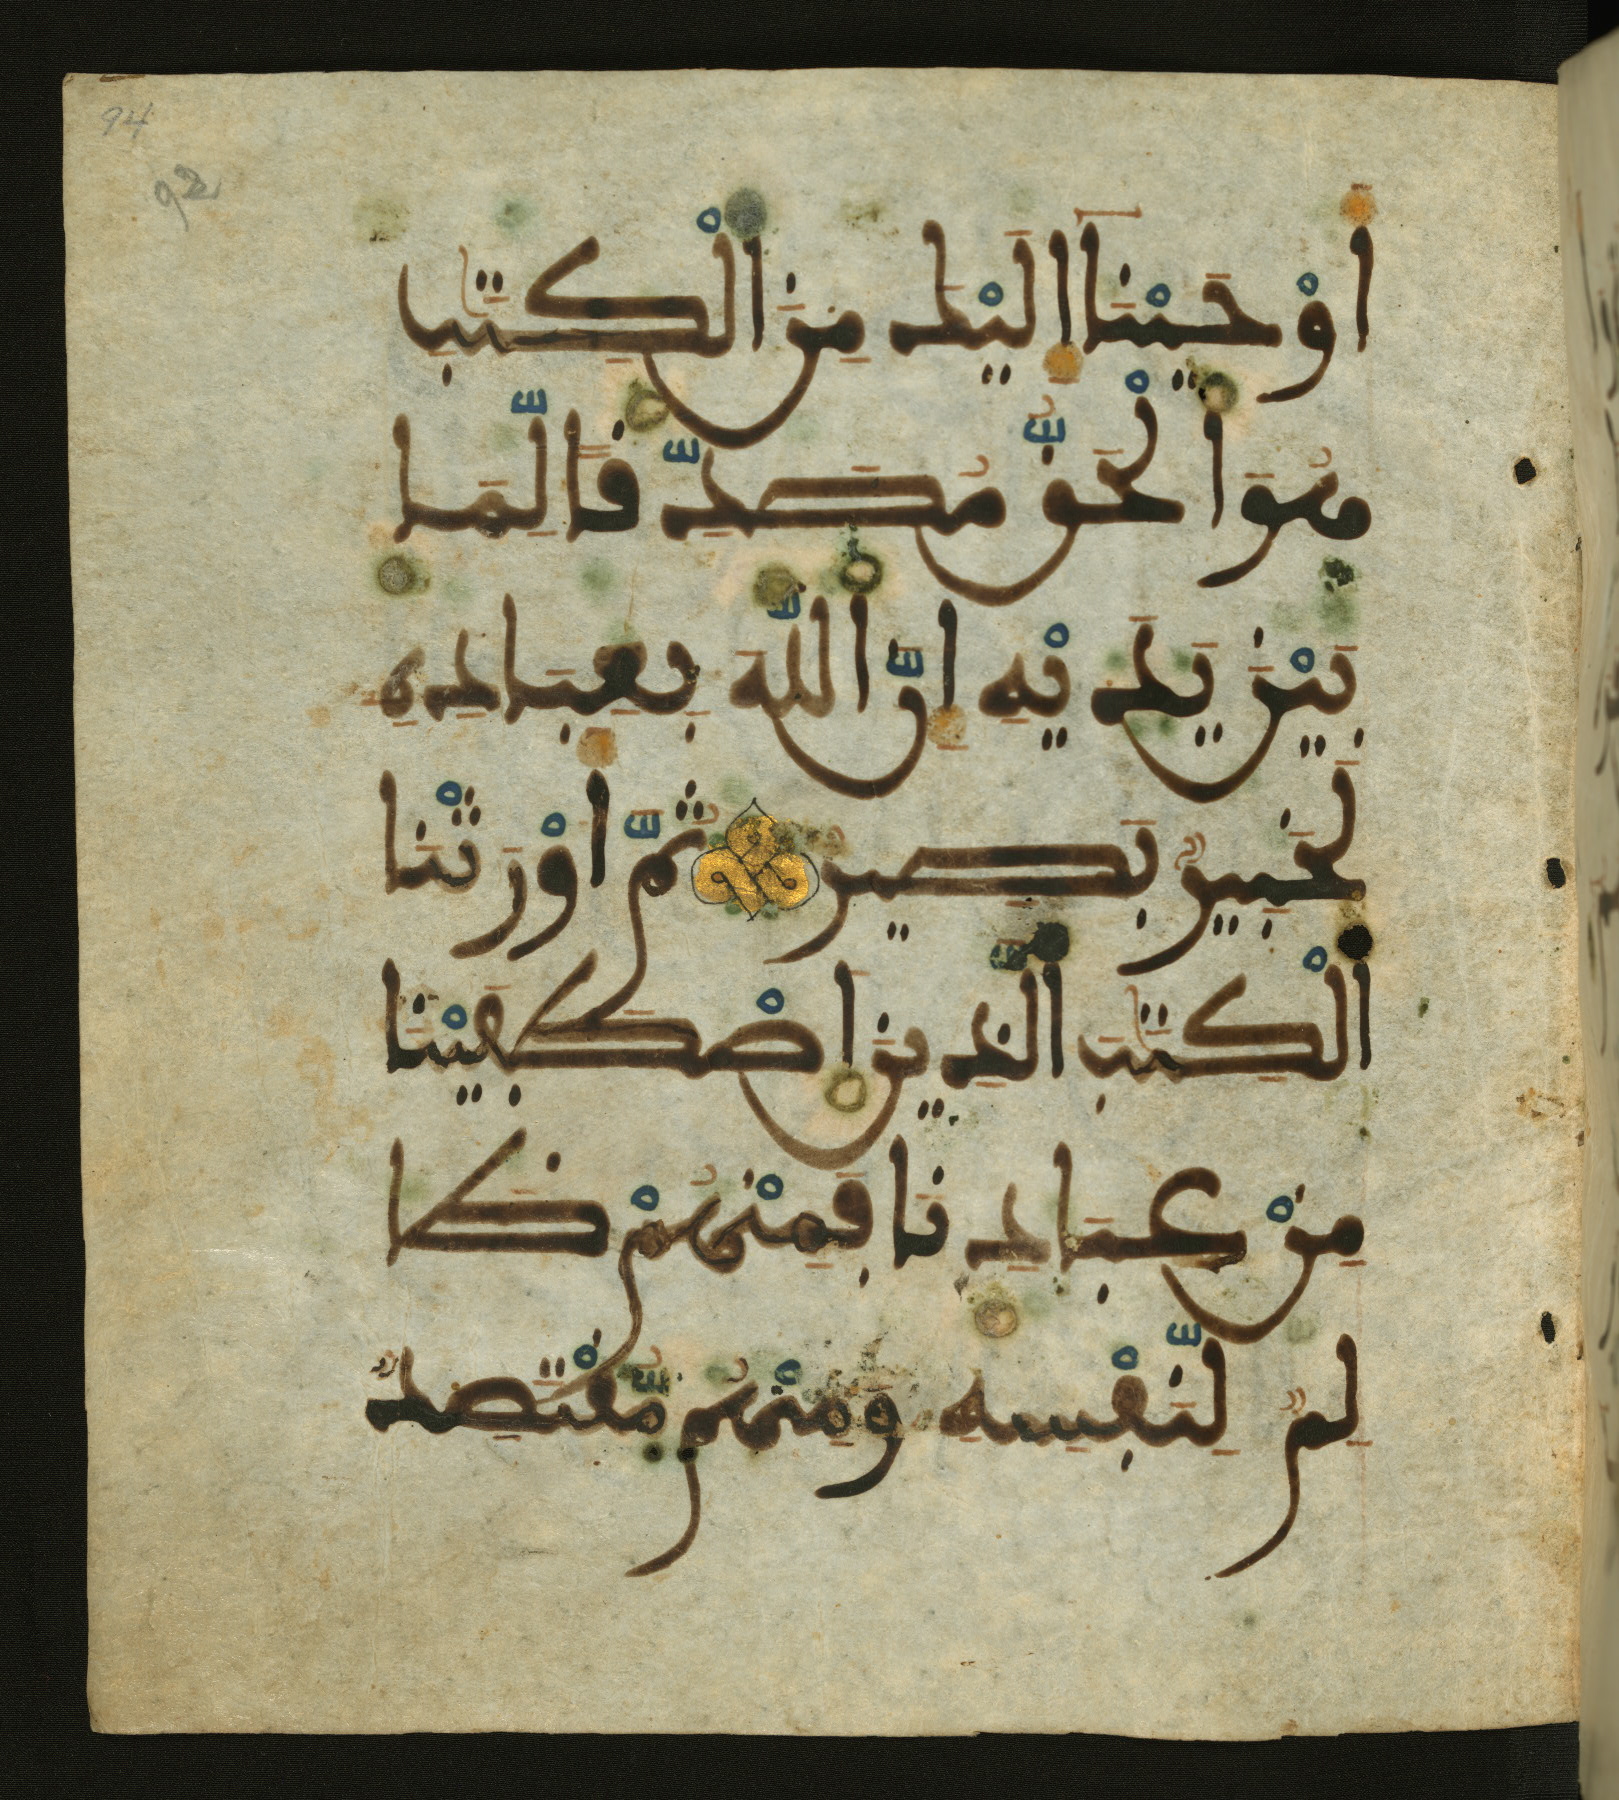 94
92
أَوْحَيْنَآ إِلَيْكَ مِنَ ٱلْكِتَٰبِ
هُوَ ٱلْحَقُّ مُصَدِّقًا لِّمَا
بَيْنَ يَدَيْهِ إِنَّ ٱللَّهَ بِعِبَادِهِ
لَخَبِيرٌ بَصِيرٌ ثُمَّ أَوْرَثْنَا
ٱلْكِتَٰبَ ٱلَّذِينَ ٱصْطَفَيْنَا
مِنْ عِبَادِنَا فَمِنْهُمْ ظَا
لِمٌ لِّنَفْسِهِ وَمِنْهُم مُّقْتَصِدٌ